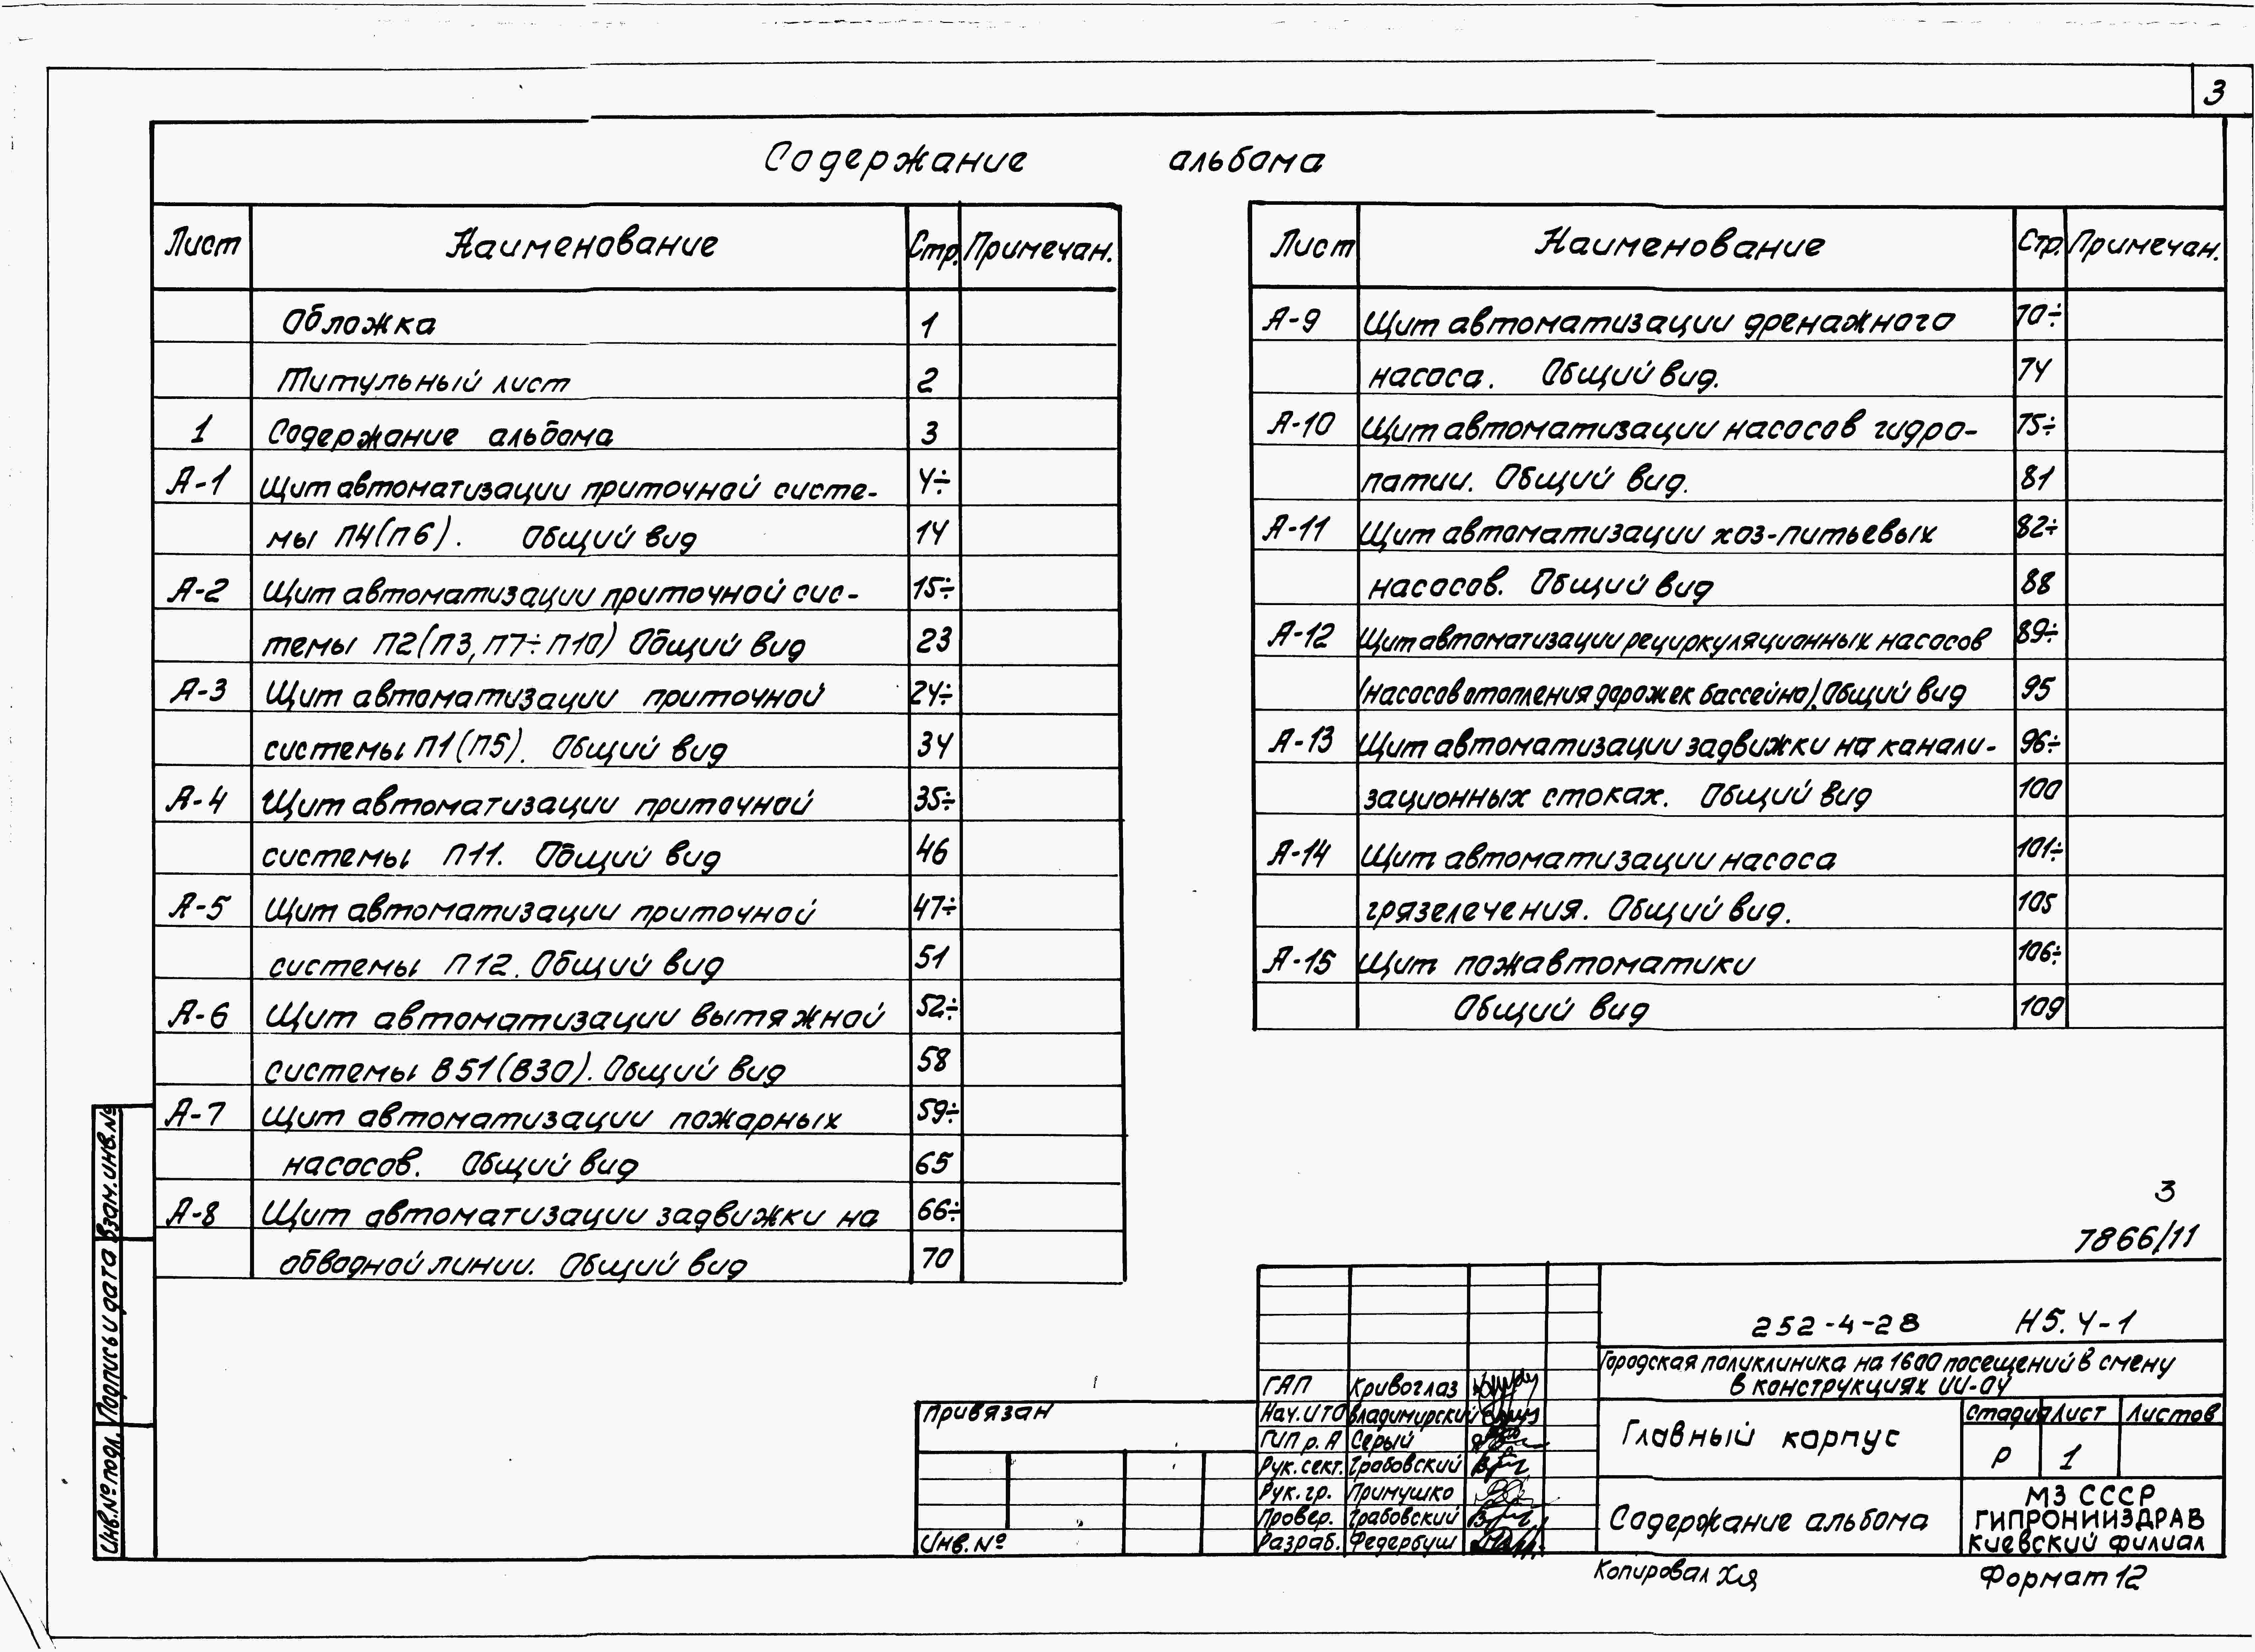 3
Содержание альбома
Лист Наименование Стр. Примечан.
Обложка 1
Титульный лист 2
1 Содержание альбома 3
А-1 Щит автоматизации приточной систе- 4÷
мы П4(П6). Общий вид 14
А-2 Щит автоматизации приточной сис- 15÷
темы П2(П3, П7÷П10) Общий вид 23
А-3 Щит автоматизации приточной 24÷
системы П1(П5). Общий вид 34
А-4 Щит автоматизации приточной 35÷
системы П11. Общий вид 46
А-5 Щит автоматизации приточной 47÷
системы П12. Общий вид 51
А-6 Щит автоматизации вытяжной 52÷
системы В51(В30). Общий вид 58
А-7 Щит автоматизации пожарных 59÷
насосов. Общий вид 65
А-8 Щит автоматизации задвижки на 66÷
обводной линии. Общий вид 70
Лист Наименование Стр. Примечан.
А-9 Щит автоматизации дренажного 70÷
насоса. Общий вид. 74
А-10 Щит автоматизации насосов гидро- 75÷
патии. Общий вид. 81
А-11 Щит автоматизации хоз-питьевых 82÷
насосов. Общий вид 88
А-12 Щит автоматизации рециркуляционных насосов 89÷
(насосов отопления дорожек бассейна). Общий вид 95
А-13 Щит автоматизации задвижки на канали- 96÷
зационных стоках. Общий вид 100
А-14 Щит автоматизации насоса 101÷
грязелечения. Общий вид. 105
А-15 Щит пожавтоматики 106÷
Общий вид 109
3
7866/11
252-4-28 Н5.4-1
Городская поликлиника на 1600 посещений в смену
в конструкциях ИИ-04
Главный корпус
Стадия Лист Листов
Р 1
Содержание альбома
МЗ СССР
ГИПРОНИИЗДРАВ
Киевский филиал
ГАП Кривоглаз
Нач. ИТО Владимирский
ГИП р. А Серый
Рук. сект. Грабовский
Рук. гр. Примушко
Провер. Грабовский
Разраб. Федербуш
Привязан
Инв. №
Копировал Хя
Формат 12
Взам. инв. №
Подпись и дата
Инв. № подл.